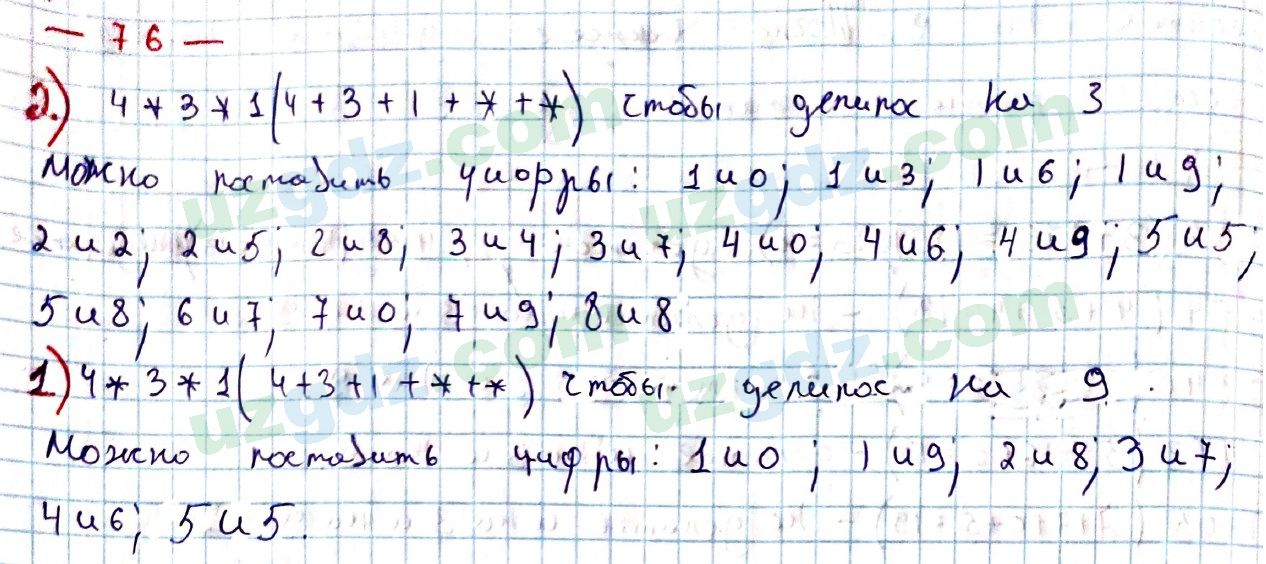 — 76 —
2.) 4 * 3 * 1 (4 + 3 + 1 + * + *) чтобы делилос на 3
Можно поставить цифры: 1 и 0; 1 и 3; 1 и 6; 1 и 9;
2 и 2; 2 и 5; 2 и 8; 3 и 4; 3 и 7; 4 и 0; 4 и 6; 4 и 9; 5 и 5;
5 и 8; 6 и 7; 7 и 0; 7 и 9; 8 и 8
1) 4 * 3 * 1 ( 4 + 3 + 1 + * + * ) чтобы делилос на 9.
Можно поставить цифры: 1 и 0; 1 и 9; 2 и 8; 3 и 7;
4 и 6; 5 и 5.
uzgdz.com
uzgdz.com
uzgdz.com
uzgdz.com